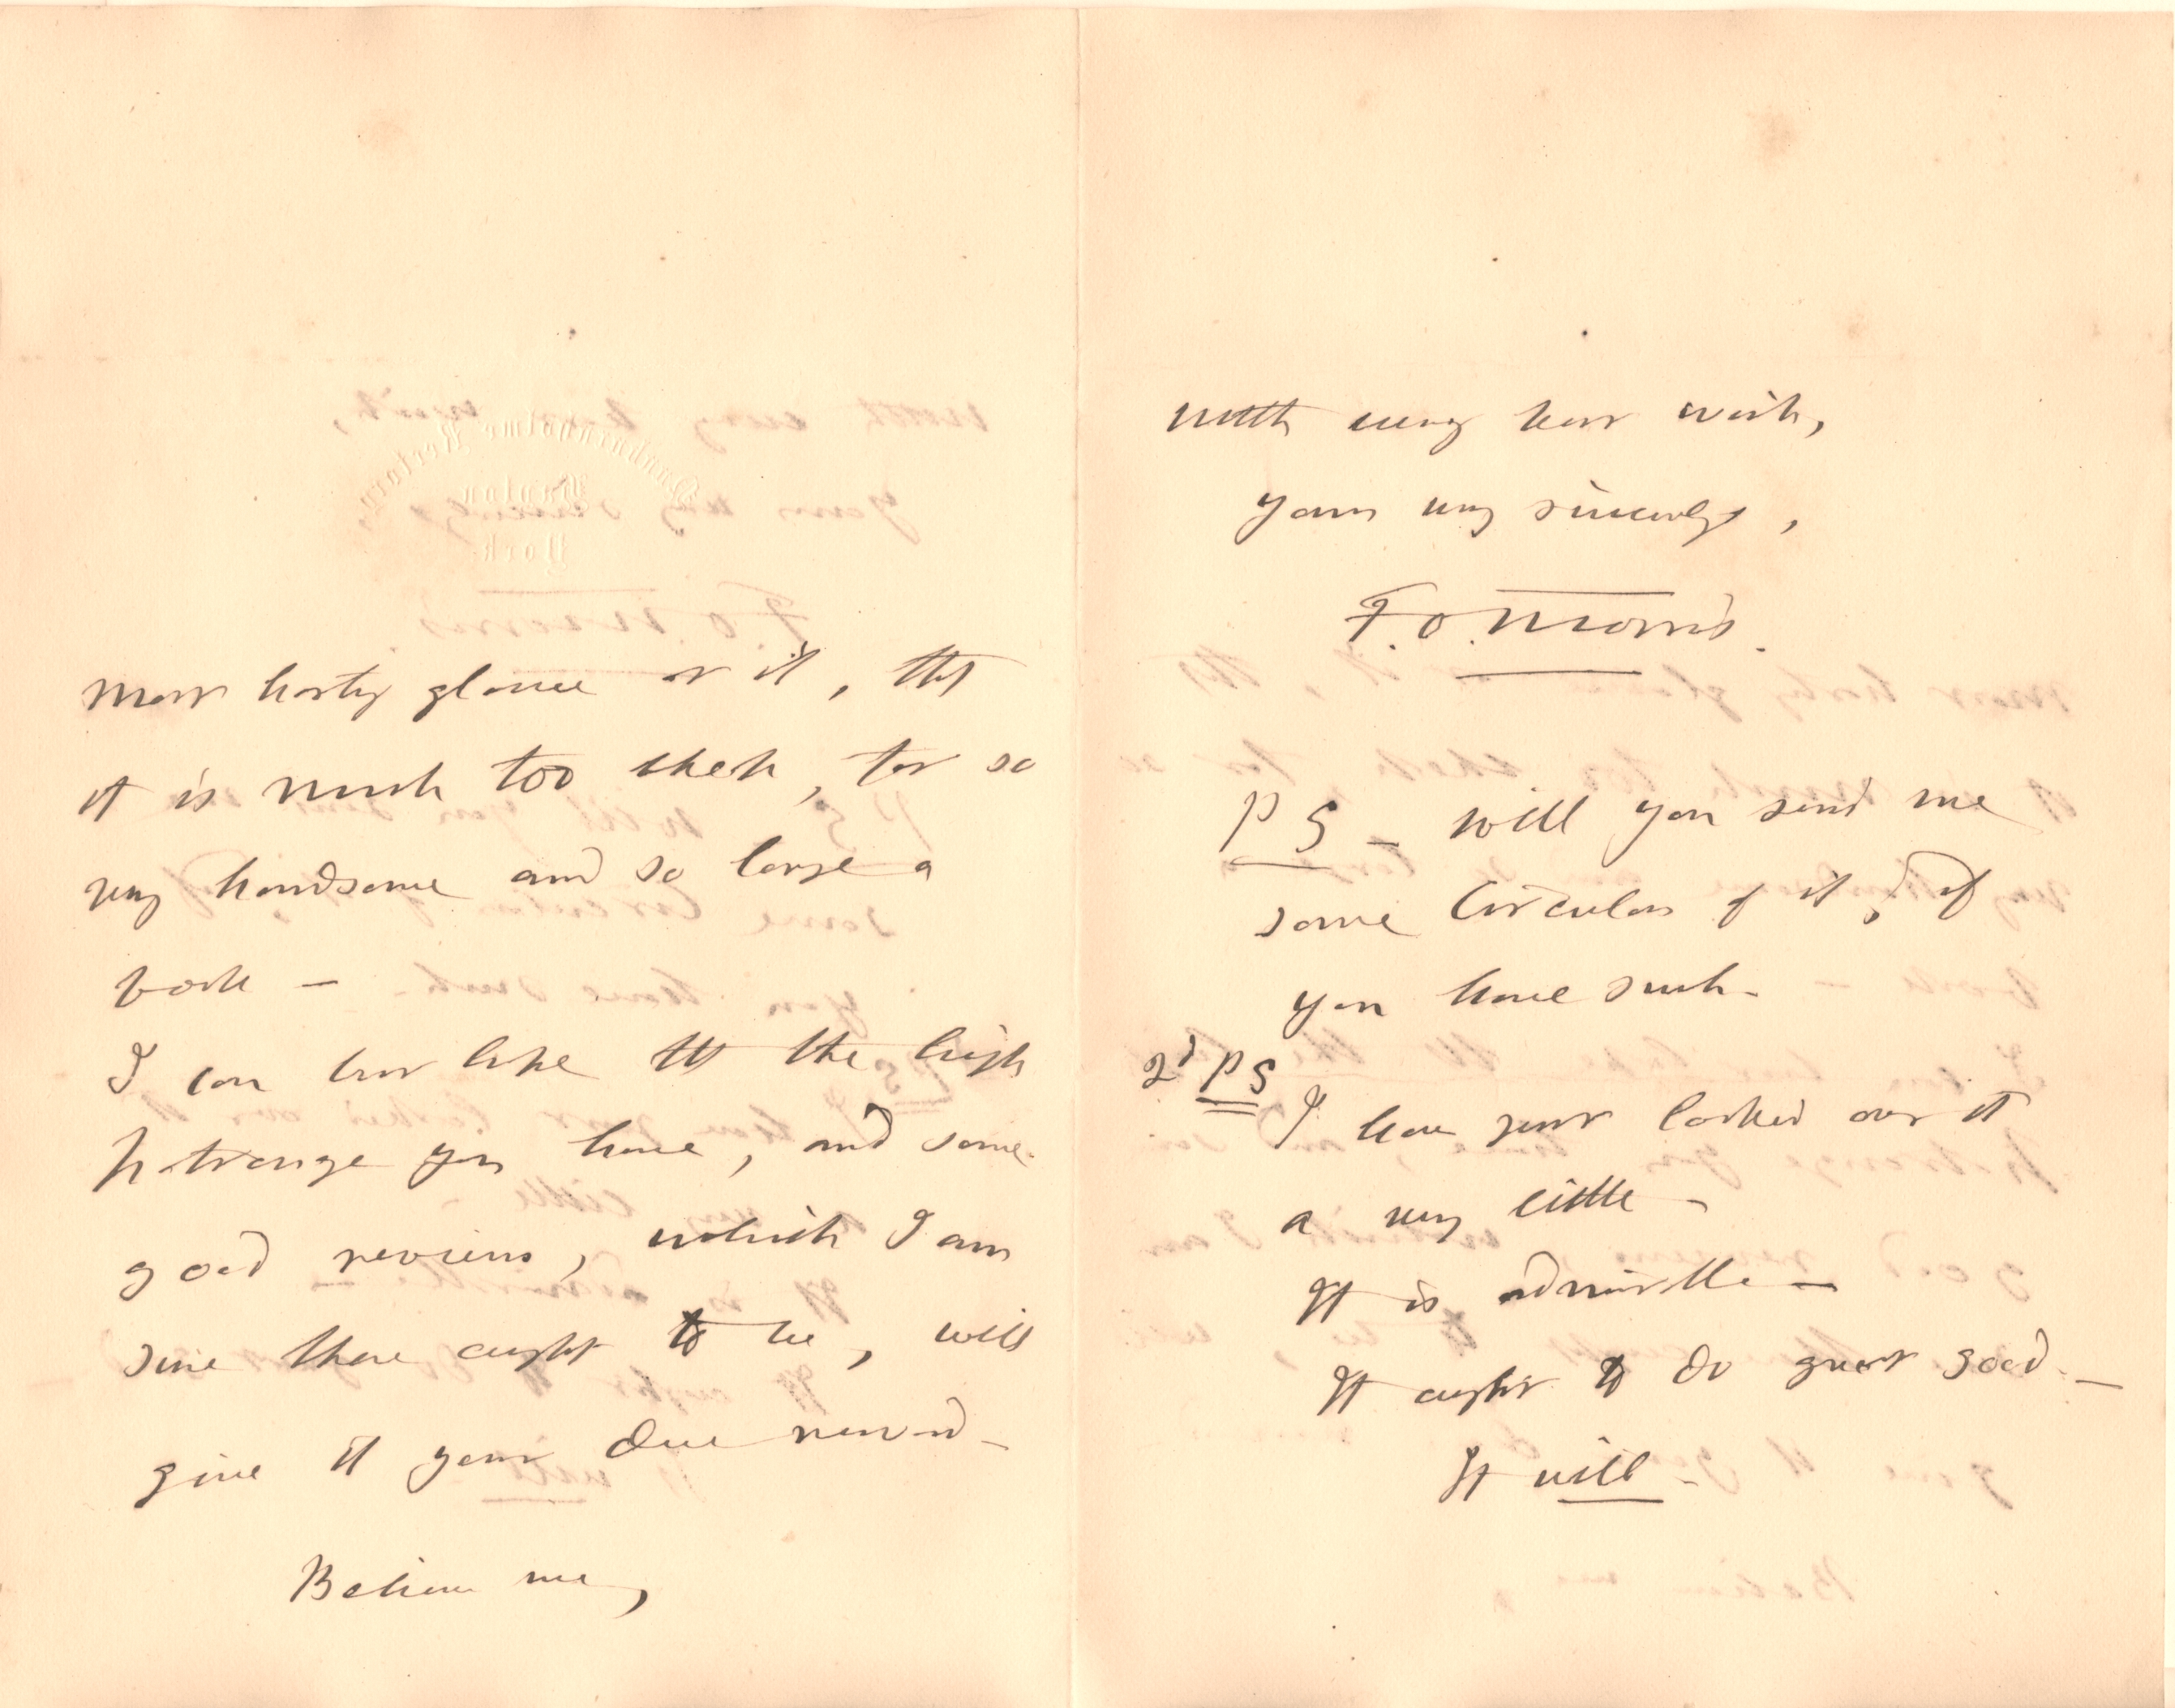 most hasty glance at it, that
it is much too cheap, for so
very handsome and so large a
book –
I can but hope that the high
patronage you have, and some
good reviews, which I am
sure there ought to be, will
give it your due reward –
Believe me,
with every best wish,
yours very sincerely,
F. O. Morris.
PS – will you send me
some Circulars of it, if
you have such –
2d PS
I have just looked over it
a very little –
It is admirable –
It ought to do great good –
It will –
Nunburnholme Rectory
Hayton
York